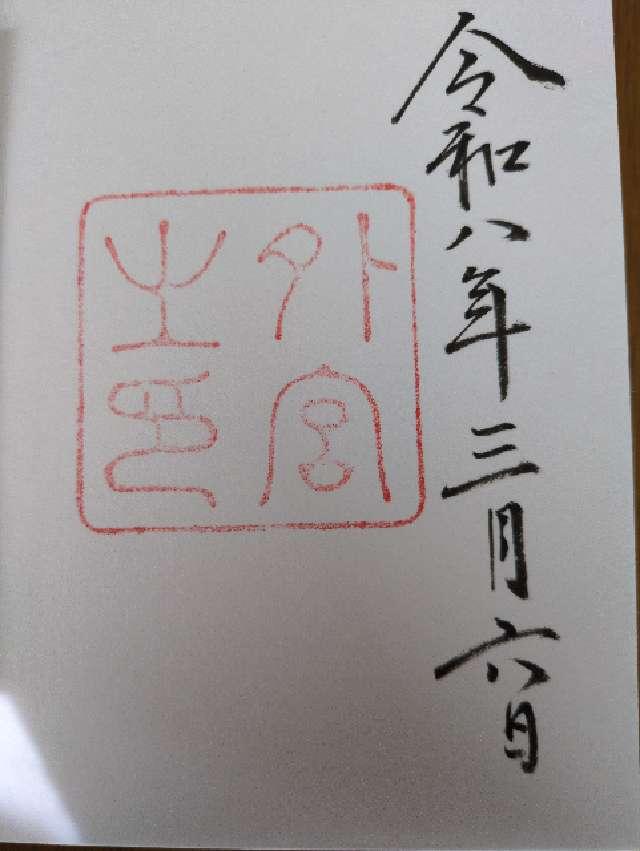 令和八年三月六日
外宮
之印